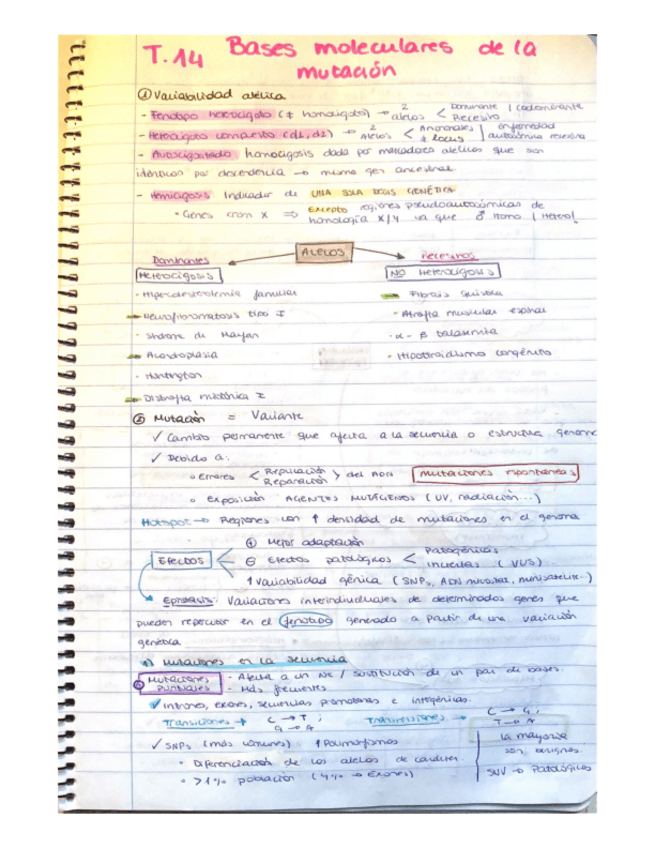 T.14 Bases moleculares de la
mutación
① Variabilidad alélica
- Fenotipo heterocigoto (≠ homocigoto) → 2 alelos < Dominante / codominante
Recesivo
- Heterocigoto compuesto (d1, d2) → 2 Alelos < Anormales
≠ locus
enfermedad
autosómica recesiva
- homocigosis dada por marcadores alélicos que son
idénticos por descendencia → mismo gen ancestral.
- Hemicigosis Indicador de UNA SOLA DOSIS GENÉTICA
• Genes crom X ⇒ Excepto regiones pseudoautosómicas de
homología X/Y ya que ♂ Homo / Hetero!
ALELOS
Dominantes
Recesivos
HETEROCIGOSIS
NO HETEROCIGOSIS
- Hipercolesterolemia familiar
- Fibrosis quística
- Neurofibromatosis tipo I
- Atrofia muscular espinal
- Síndrome de Marfan
- α - β talasemia
- Acondroplasia
- Hipotiroidismo congénito
- Huntington
- Distrofia miotónica I
② Mutación = Variante
✓ Cambio permanente que afecta a la secuencia o estructura genoma
✓ Debido a:
◦ Errores < Replicación
Reparación > del ADN MUTACIONES ESPONTÁNEAS
◦ EXPOSICIÓN AGENTES MUTÁGENOS (UV, radiación...)
Hotspot → Regiones con ↑ densidad de mutaciones en el genoma
⊕ Mejor adaptación
EFECTOS
⊖ Efectos patológicos < Patogénicas
inciertas (VUS)
↑ Variabilidad génica (SNPs, ADN minisatélite...)
Epistasis: Variaciones interindividuales de determinados genes que
pueden repercutir en el fenotipo generado a partir de una variación
genética
a) Mutaciones en la secuencia
MUTACIONES
PUNTUALES
- Afecta a un Nt / sustitución de un par de bases.
- Más frecuentes
✓ Intrones, exones, secuencias promotoras e intergénicas.
Transiciones → C → T ;
G → A
Transversiones → C → G ;
T → A
✓ SNPs (más comunes) : ↑ Polimorfismos
• Diferenciación de los alelos de carácter.
• > 1% población (4% → Exones)
la mayoría
son benignos
SNV → Patológicos